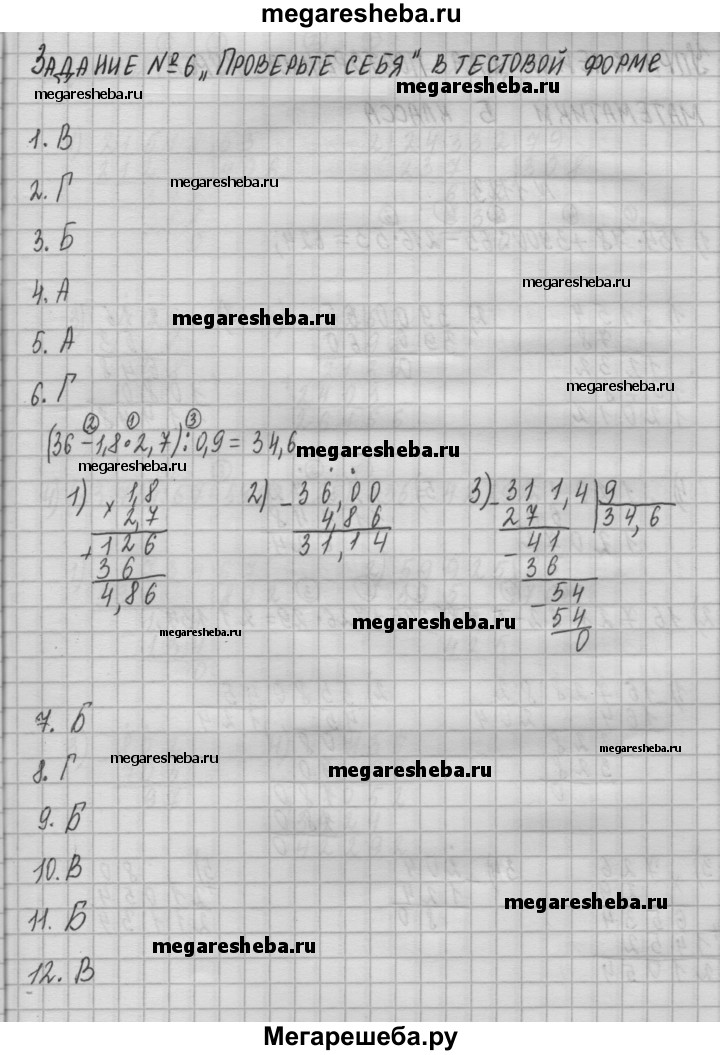 megaresheba.ru
ЗАДАНИЕ №6 „ПРОВЕРЬТЕ СЕБЯ" В ТЕСТОВОЙ ФОРМЕ
megaresheba.ru
megaresheba.ru
1. В
2. Г
megaresheba.ru
3. Б
4. А
megaresheba.ru
megaresheba.ru
5. А
6. Г
megaresheba.ru
② ① ③
(36 - 1,8 • 2,7) : 0,9 = 34,6
megaresheba.ru
megaresheba.ru
1) × 1,8 2) - 36,00 3) - 311,4 | 9
2,7 4,86 27 34,6
+ 126 31,14 - 41
36 36
4,86 - 54
megaresheba.ru
54
megaresheba.ru
0
7. Б
megaresheba.ru
megaresheba.ru
8. Г
megaresheba.ru
9. Б
10. В
megaresheba.ru
11. Б
megaresheba.ru
12. В
Мегарешеба.ру